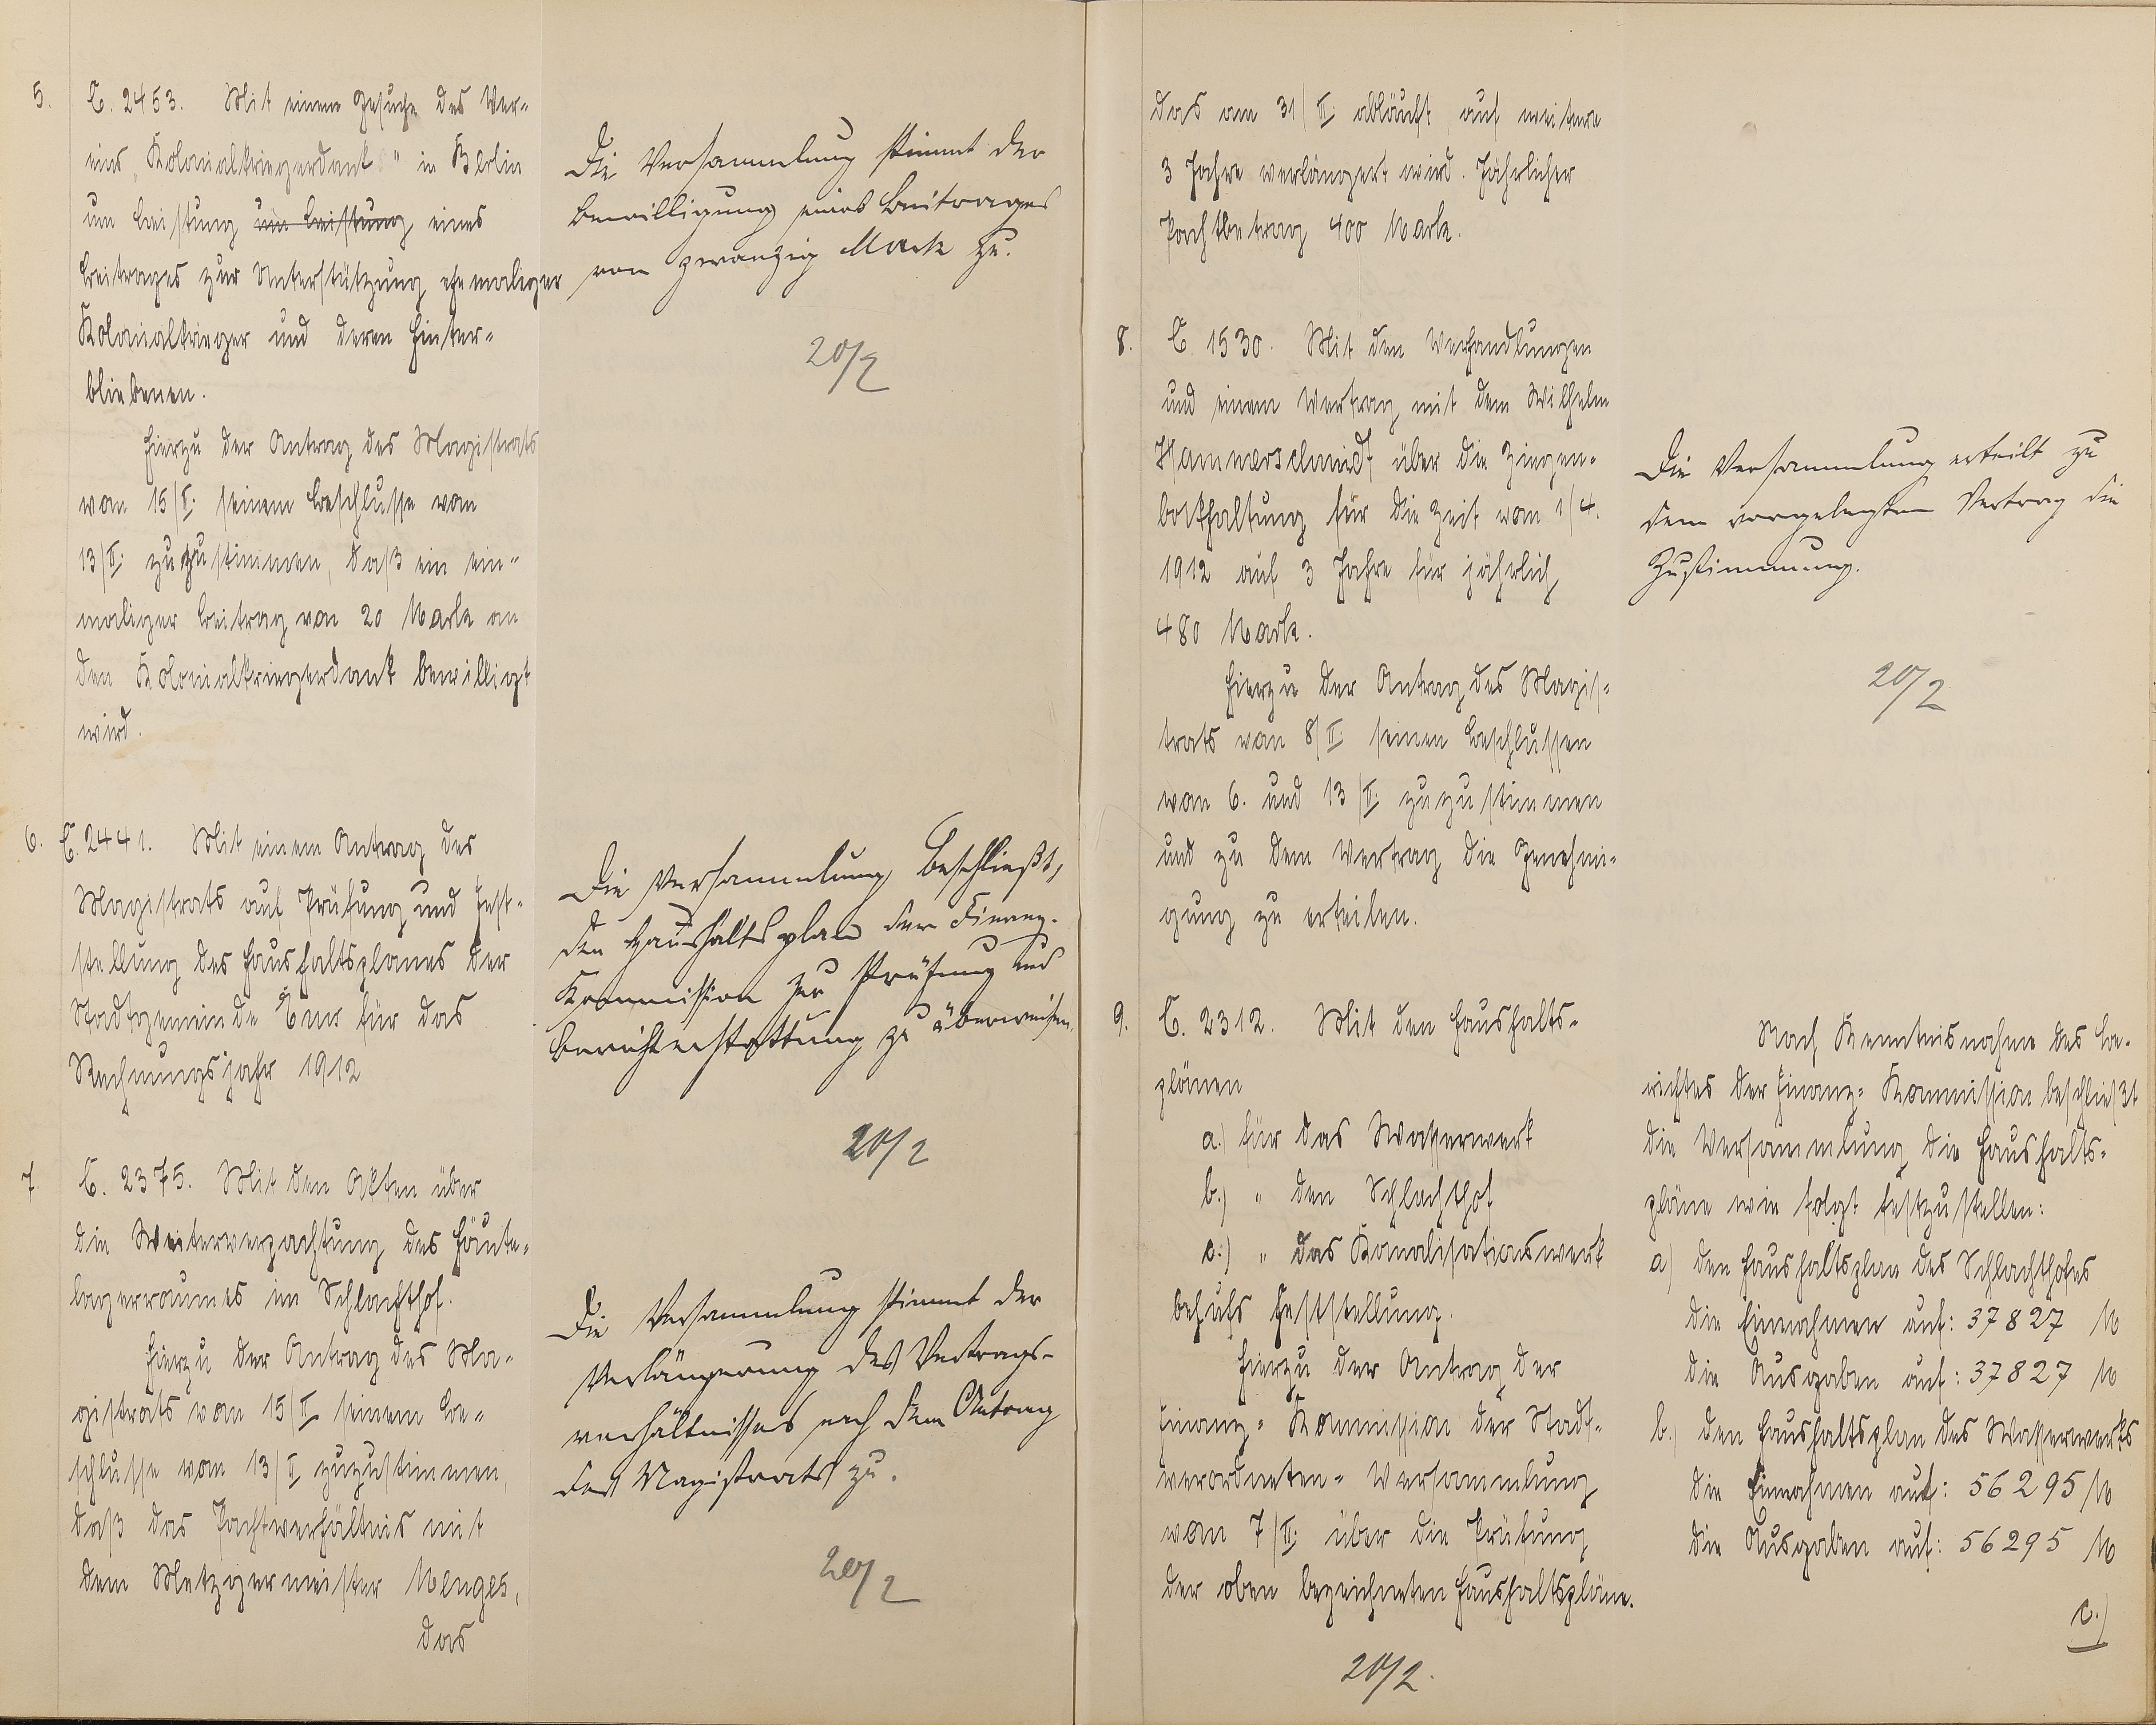 5.
E. 2453. Mit einem Gesuche des Ver-
eins „Kolonialkriegerdank" in Berlin
um Leistung um Leistung eines
Beitrages zur Unterstützung ehemaliger
Kolonialkrieger und deren Hinter-
bliebenen.
Hierzu der Antrag des Magistrats
vom 15/II. seinem Beschlusse vom
13/II. zuzustimmen, daß ein ein-
maliger Beitrag von 20 Mark an
den Kolonialkriegerdank bewilligt
wird.
Die Versammlung stimmt der
Bewilligung eines Beitrages
von zwanzig Mark zu.
20/2
6.
E. 2441. Mit einem Antrag des
Magistrats auf Prüfung und Fest-
stellung des Haushaltsplanes der
Stadtgemeinde Ems für das
Rechnungsjahr 1912
Die Versammlung beschließt,
den Haushaltsplan der Finanz-
Kommission zur Prüfung und
Berichterstattung zu überweisen.
20/2
7.
E. 2375. Mit den Akten über
die Weiterverpachtung des Häute-
lagerraumes im Schlachthof.
Hierzu der Antrag des Ma-
gistrats vom 15/II seinem Be-
schlusse vom 13/II zuzustimmen,
daß das Pachtverhältnis mit
dem Metzgermeister Menges,
das
Die Versammlung stimmt der
Verlängerung des Vertrags-
verhältnisses nach dem Antrag
des Magistrats zu.
20/2
das am 31/II. abläuft auf weitere
3 Jahre verlängert wird. Jährlicher
Pachtbetrag 400 Mark.
8.
E. 1530. Mit den Verhandlungen
und einem Vertrag mit dem Wilhelm
Hammerschmidt über die Ziegen-
bockhaltung für die Zeit vom 1/4.
1912 auf 3 Jahre für jährlich
480 Mark.
Hierzu der Antrag des Magis-
trats vom 8/II. seinen Beschlüssen
vom 6. und 13/II. zuzustimmen
und zu dem Vertrag die Genehmi-
gung zu erteilen.
Die Versammlung erteilt zu
dem vorgelegten Vertrag die
Zustimmung.
20/2
9.
E. 2312. Mit den Haushalts-
plänen
a.) für das Wasserwerk
b.) " den Schlachthof
c.) " das Kanalisationswerk
behufs Feststellung.
Hierzu der Antrag der
Finanz-Kommission der Stadt-
verordneten-Versammlung
vom 7/II. über die Prüfung
der oben bezeichneten Haushaltspläne.
20/2.
Nach Kenntnisnahme des Be-
richtes der Finanz-Kommission beschließt
die Versammlung die Haushalts-
pläne wie folgt festzustellen:
a) den Haushaltsplan des Schlachthofes
die Einnahmen auf: 37827 M
die Ausgaben auf: 37827 M
b.) den Haushaltsplan des Wasserwerks
die Einnahmen auf: 56295 M
die Ausgaben auf: 56295 M
c.)